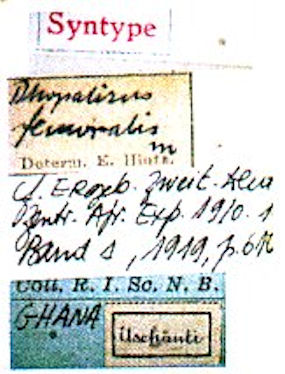 Syntype
femoralis
m
Determ. E. Hintz.
Ergeb. Zweit.
Zentr. Afr. Exp. 1910. 1
Band 1, 1919, p. 61
Coll. R. I. Sc. N. B.
GHANA
Aschanti